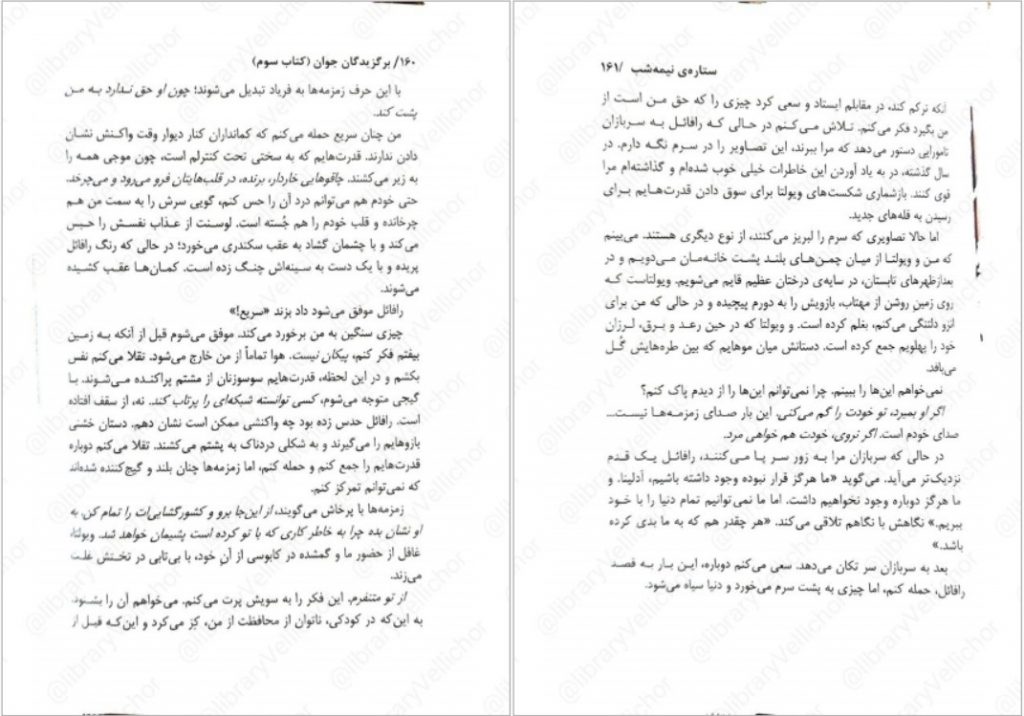 ۱۶۰/ برگزیدگان جوان (کتاب سوم)
با این حرف زمزمه‌ها به فریاد تبدیل می‌شوند؛ چون او حق ندارد به من
پشت کند.
من چنان سریع حمله می‌کنم که کمانداران کنار دیوار وقت واکنش نشان
دادن ندارند. قدرت‌هایم که به سختی تحت کنترلم است، چون موجی همه را
به زیر می‌کشند. چاقوهایی خاردار، برنده، در قلب‌هایتان فرو می‌رود و می‌چرخد.
حتی خودم هم می‌توانم درد آن را حس کنم، گویی سرش را به سمت من هم
چرخانده و قلب خودم را هم جُسته است. لوسنت از عذاب نفسش را حبس
می‌کند و با چشمان گشاد به عقب سکندری می‌خورد؛ در حالی که رنگ رافائل
پریده و با یک دست به سینه‌اش چنگ زده است. کمان‌ها عقب کشیده
می‌شوند.
رافائل موفق می‌شود داد بزند «سریع!»
چیزی سنگین به من برخورد می‌کند. موفق می‌شوم قبل از آنکه به زمین
بیفتم فکر کنم، پیکان نیست. هوا تماماً از من خارج می‌شود. تقلا می‌کنم نفس
بکشم و در این لحظه، قدرت‌هایم سوسوزنان از مشتم پراکنده می‌شوند. با
گیجی متوجه می‌شوم، کسی توانسته شبکه‌ای را پرتاب کند. نه، از سقف افتاده
است. رافائل حدس زده بود چه واکنشی ممکن است نشان دهم. دستان خشنی
بازوهایم را می‌گیرند و به شکلی دردناک به پشتم می‌کشند. تقلا می‌کنم دوباره
قدرت‌هایم را جمع کنم و حمله کنم، اما زمزمه‌ها چنان بلند و گیج‌کننده شده‌اند
که نمی‌توانم تمرکز کنم.
زمزمه‌ها با پرخاش می‌گویند، از این‌جا برو و کشورگشایی‌ات را تمام کن. به
او نشان بده چرا به خاطر کاری که با تو کرده است پشیمان خواهد شد. ویولتا،
غافل از حضور ما و گمشده در کابوسی از آنِ خود، با بی‌تابی در تختش غلت
می‌زند.
از تو متنفرم. این فکر را به سویش پرت می‌کنم. می‌خواهم آن را بشنود.
به این‌که در کودکی، ناتوان از محافظت از من، کِز می‌کرد و این‌که قبل از
ستاره‌ی نیمه‌شب /۱۶۱
آنکه ترکم کند، در مقابلم ایستاد و سعی کرد چیزی را که حق من است از
من بگیرد فکر می‌کنم. تلاش می‌کنم در حالی که رافائل به سربازان
تامورایی دستور می‌دهد که مرا ببرند، این تصاویر را در سرم نگه دارم. در
سال گذشته، در به یاد آوردن این خاطرات خیلی خوب شده‌ام و گذاشته‌ام مرا
قوی کنند. بازشماری شکست‌های ویولتا برای سوق دادن قدرت‌هایم برای
رسیدن به قله‌های جدید.
اما حالا تصاویری که سرم را لبریز می‌کنند، از نوع دیگری هستند. می‌بینم
که من و ویولتا از میان چمن‌های بلند پشت خانه‌مان می‌دویم و در
بعدازظهرهای تابستان، در سایه‌ی درختان عظیم قایم می‌شویم. ویولتاست که
روی زمین روشن از مهتاب، بازویش را به دورم پیچیده و در حالی که من برای
انزو دلتنگی می‌کنم، بغلم کرده است. و ویولتا که در حین رعد و برق، لرزان
خود را پهلویم جمع کرده است. دستانش میان موهایم که بین طره‌هایش گُل
می‌بافد.
نمی‌خواهم این‌ها را ببینم. چرا نمی‌توانم این‌ها را از دیدم پاک کنم؟
اگر او بمیرد، تو خودت را گم می‌کنی. این بار صدای زمزمه‌ها نیست...
صدای خودم است. اگر نروی، خودت هم خواهی مرد.
در حالی که سربازان مرا به زور سر پا می‌کنند، رافائل یک قدم
نزدیک‌تر می‌آید. می‌گوید «ما هرگز قرار نبوده وجود داشته باشیم، آدلینا. و
ما هرگز دوباره وجود نخواهیم داشت. اما ما نمی‌توانیم تمام دنیا را با خود
ببریم.» نگاهش با نگاهم تلاقی می‌کند. «هر چقدر هم که به ما بدی کرده
باشد.»
بعد به سربازان سر تکان می‌دهد. سعی می‌کنم دوباره، این بار به قصد
رافائل، حمله کنم، اما چیزی به پشت سرم می‌خورد و دنیا سیاه می‌شود.
@libraryVellichor